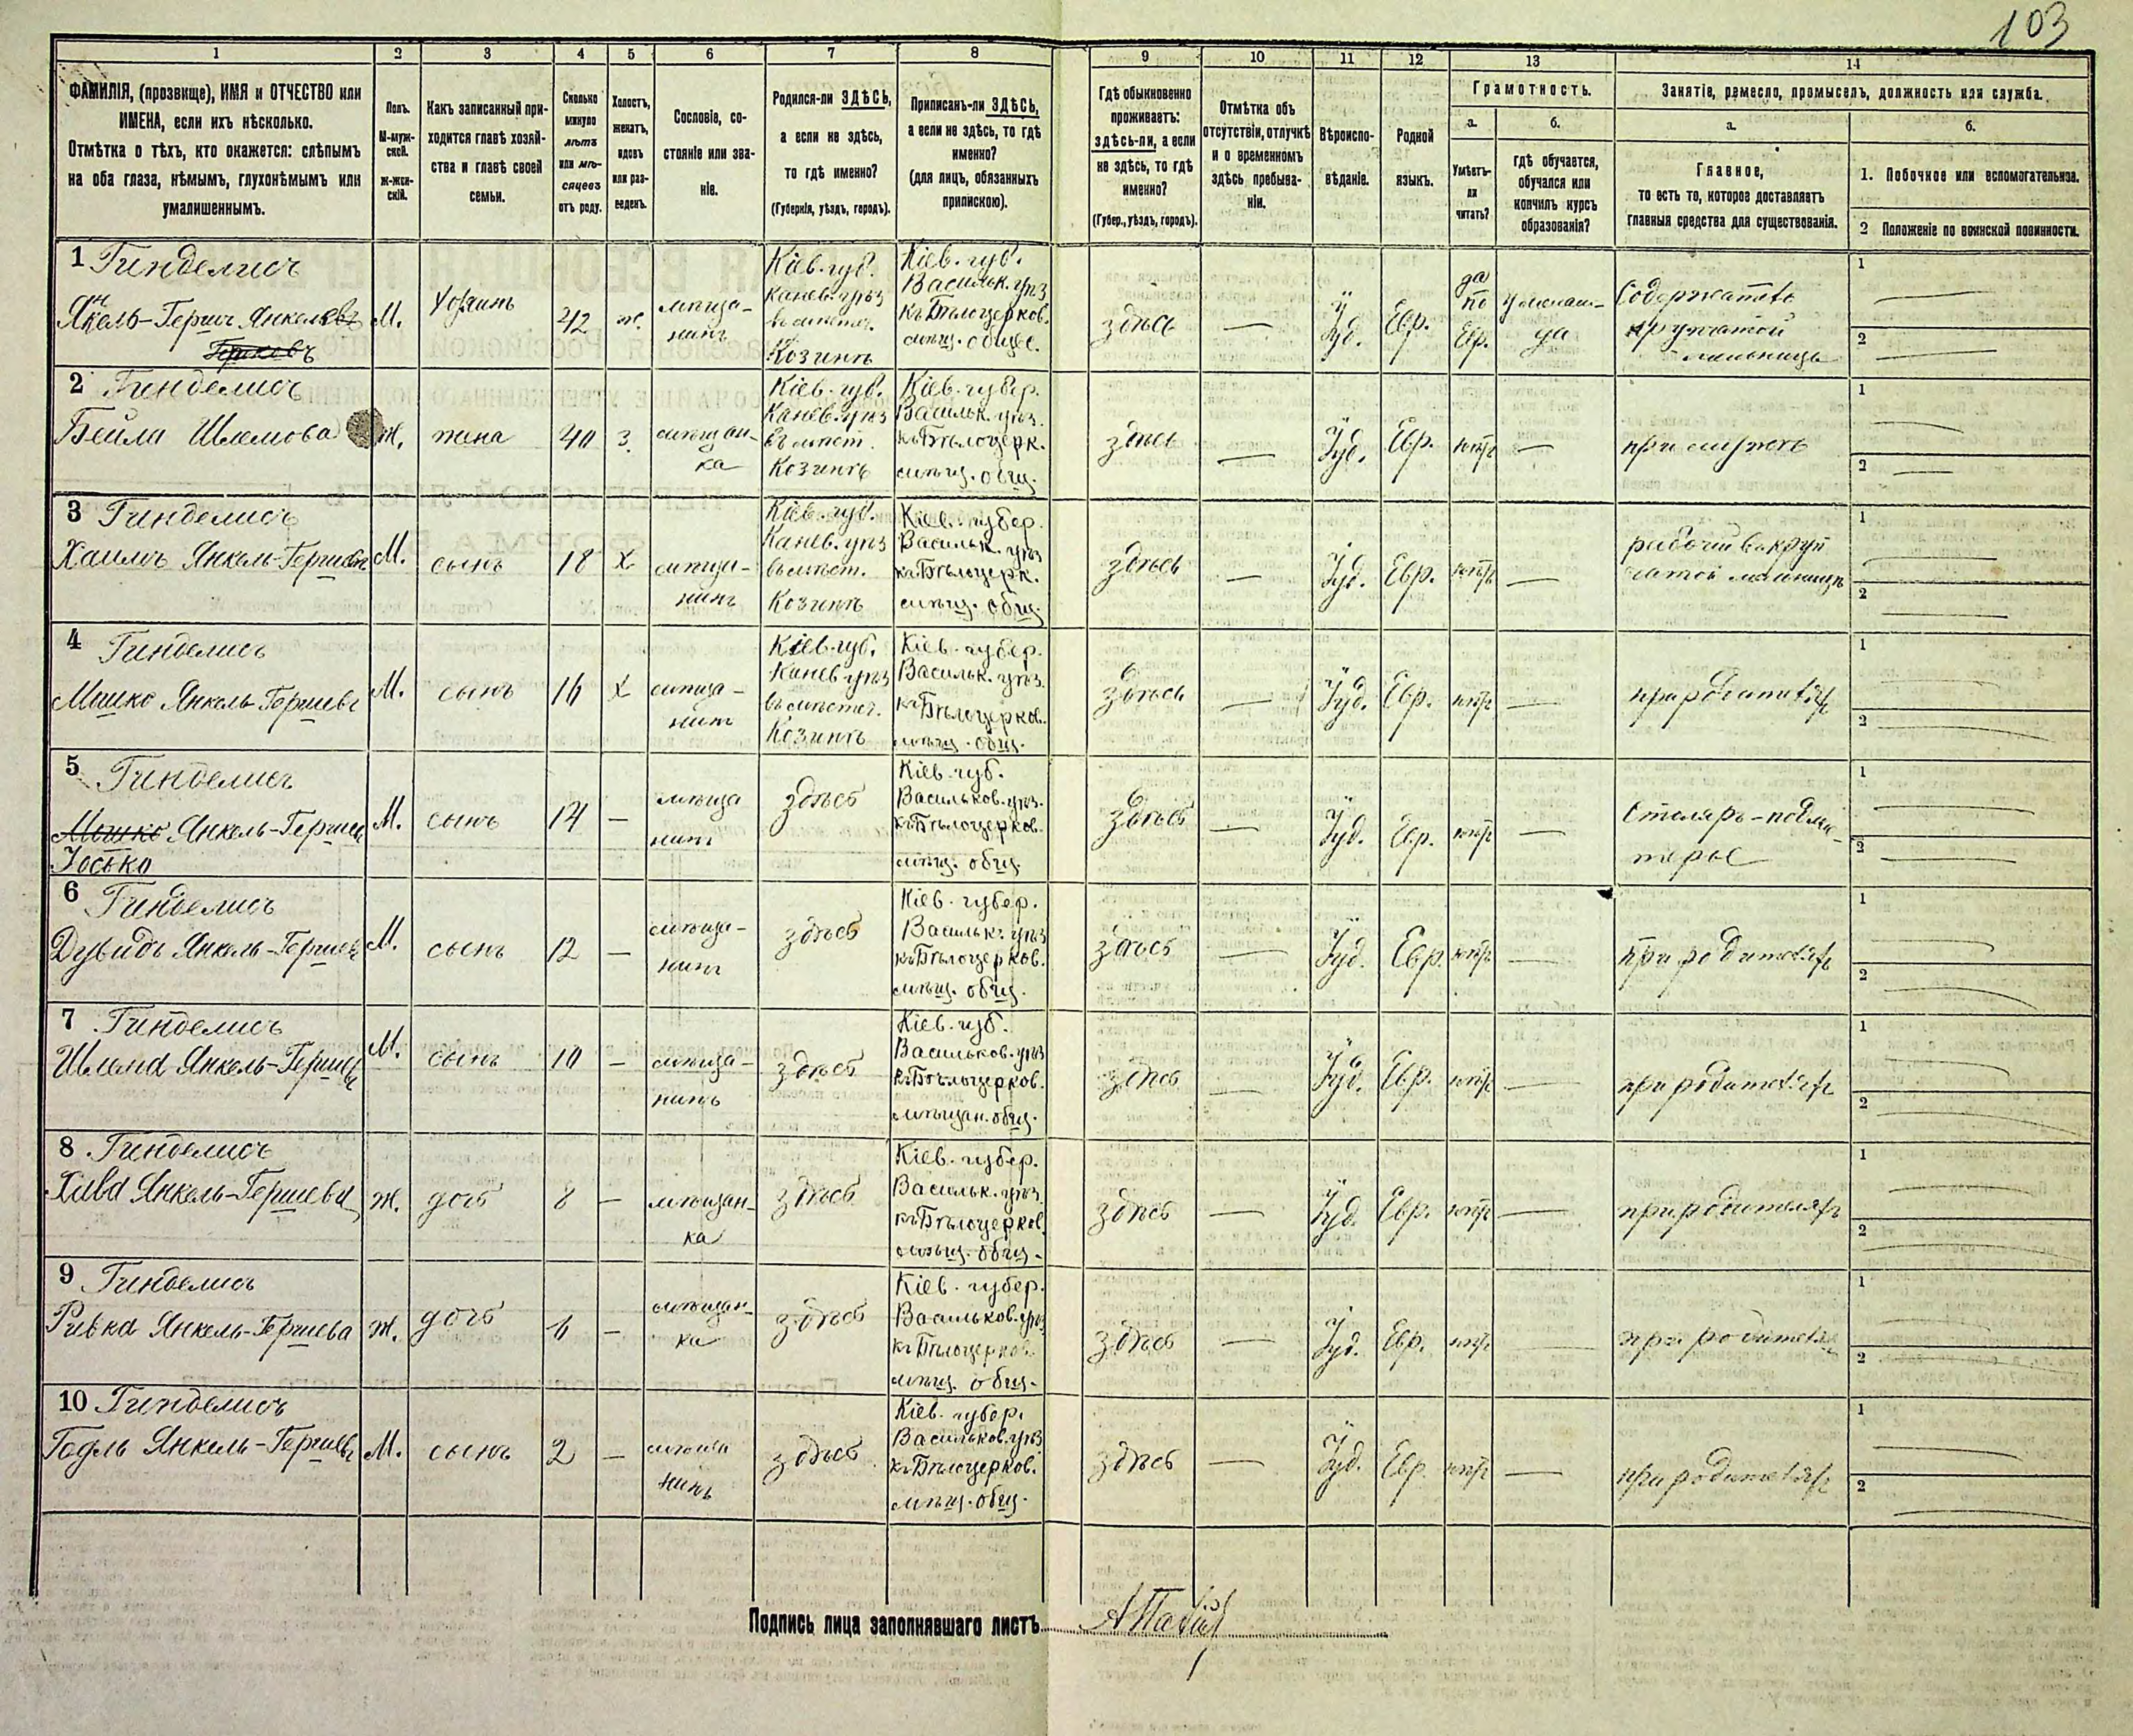 103
1 2 3 4 5 6 7 8 9 10 11 12 13 14
ФАМИЛІЯ, (прозвище), ИМЯ и ОТЧЕСТВО или
ИМЕНА, если ихъ нѣсколько.
Отмѣтка о тѣхъ, кто окажется: слѣпымъ
на оба глаза, нѣмымъ, глухонѣмымъ или
умалишеннымъ.
Полъ.
М-муж-
ской.
Ж-жен-
скій.
Какъ записанный при-
ходится главѣ хозяй-
ства и главѣ своей
семьи.
Сколько
минуло
лѣтъ
или мѣ-
сяцевъ
отъ роду.
Холостъ,
женатъ,
вдовъ
или раз-
веденъ.
Сословіе, со-
стояніе или зва-
ніе.
Родился-ли ЗДѢСЬ,
а если не здѣсь,
то гдѣ именно?
(Губернія, уѣздъ, городъ).
Приписанъ-ли ЗДѢСЬ,
а если не здѣсь, то гдѣ
именно?
(для лицъ, обязанныхъ
припискою).
Гдѣ обыкновенно
проживаетъ:
здѣсь-ли, а если
не здѣсь, то гдѣ
именно?
(Губер., уѣздъ, городъ).
Отмѣтка объ
отсутствіи, отлучкѣ
и о временномъ
здѣсь пребыва-
ніи.
Вѣроиспо-
вѣданіе.
Родной
языкъ.
Грамотность.
а.
Умѣетъ-
ли
читать?
б.
гдѣ обучается,
обучался или
кончилъ курсъ
образованія?
Занятіе, ремесло, промыселъ, должность или служба.
а.
Главное,
то есть то, которое доставляетъ
главныя средства для существованія.
б.
1. Побочное или вспомогательное.
2 Положеніе по воинской повинности.
1 Гинделисъ
Янкель-Гершъ Янкелевъ
Гершковъ
М.
Хозяинъ
42
ж.
мѣща-
нинъ
Кіев. губ.
Канев. уѣз
въ мѣстеч.
Козинѣ
Кіев. губ.
Васильк. уѣз
къ Бѣлоцерков.
мѣщ. общес.
здѣсь
—
Іуд.
Евр.
да
по
Евр.
у меламе-
да
Содержатель
крупчатой
мельницы
1 —
2 —
2 Гинделисъ
Бейла Шлемова
Ж.
жена
40
З.
мѣщан-
ка
Кіев. губ.
Канев. уѣз
въ мѣст.
Козинѣ
Кіев. губер.
Васильк. уѣз.
къ Бѣлоцерк.
мѣщ. общ.
здѣсь
—
Іуд.
Евр.
нѣтъ
—
при мужѣ
1 —
2 —
3 Гинделисъ
Хаимъ Янкель-Гершевъ
М.
сынъ
18
Х
мѣща-
нинъ
Кіев. губ.
Канев. уѣз
въ мѣст.
Козинѣ
Кіев. губер.
Васильк. уѣз
къ Бѣлоцерк.
мѣщ. общ.
здѣсь
—
Іуд.
Евр.
нѣтъ
—
рабочій в круп
чатой мельницѣ
1 —
2 —
4 Гинделисъ
Мошко Янкель-Гершевъ
М.
сынъ
16
Х
мѣща-
нинъ
Кіев. губ.
Канев уѣз
въ мѣстеч.
Козинѣ
Кіев. губер.
Васильк. уѣз.
къ Бѣлоцерков.
мѣщ. общ.
здѣсь
—
Іуд.
Евр.
нѣтъ
—
при родителяхъ
1 —
2 —
5 Гинделисъ
Мошко Янкель-Гершев
Іосько
М.
сынъ
14
—
мѣща
нинъ
здѣсь
Кіев. губ.
Васильков. уѣз.
къ Бѣлоцерков.
мѣщ. общ.
здѣсь
—
Іуд.
Евр.
нѣтъ
—
Столяръ-подмас-
терье
1 —
2 —
6 Гинделисъ
Дувидъ Янкель-Гершевъ
М.
сынъ
12
—
мѣща-
нинъ
здѣсь
Кіев. губер.
Васильк. уѣз
къ Бѣлоцерков.
мѣщ. общ.
здѣсь
—
Іуд.
Евр.
нѣтъ
—
при родителяхъ
1 —
2 —
7 Гинделисъ
Шлема Янкель-Гершевъ
М.
сынъ
10
—
мѣща-
нинъ
здѣсь
Кіев. губ.
Васильков. уѣз
къ Бѣлоцерков.
мѣщан. общ.
здѣсь
—
Іуд.
Евр.
нѣтъ
—
при родителяхъ
1 —
2 —
8 Гинделисъ
Хива Янкель-Гершева
Ж.
дочь
8
—
мѣщан-
ка
здѣсь
Кіев. губер.
Васильк. уѣз
къ Бѣлоцерков.
мѣщ. общ.
здѣсь
—
Іуд.
Евр.
нѣтъ
—
при родителяхъ
1 —
2 —
9 Гинделисъ
Ривка Янкель-Гершева
Ж.
дочь
6
—
мѣщан-
ка
здѣсь
Кіев. губер.
Васильков. уѣз
къ Бѣлоцерков.
мѣщ. общ.
здѣсь
—
Іуд.
Евр.
нѣтъ
—
при родителях
1 —
2 —
10 Гинделисъ
Годль Янкель-Гершевъ
М.
сынъ
2
—
мѣща
нинъ
здѣсь
Кіев. губер.
Васильков. уѣз
къ Бѣлоцерков.
мѣщ. общ.
здѣсь
—
Іуд.
Евр.
нѣтъ
—
при родителяхъ
1 —
2 —
Подпись лица заполнявшаго листъ